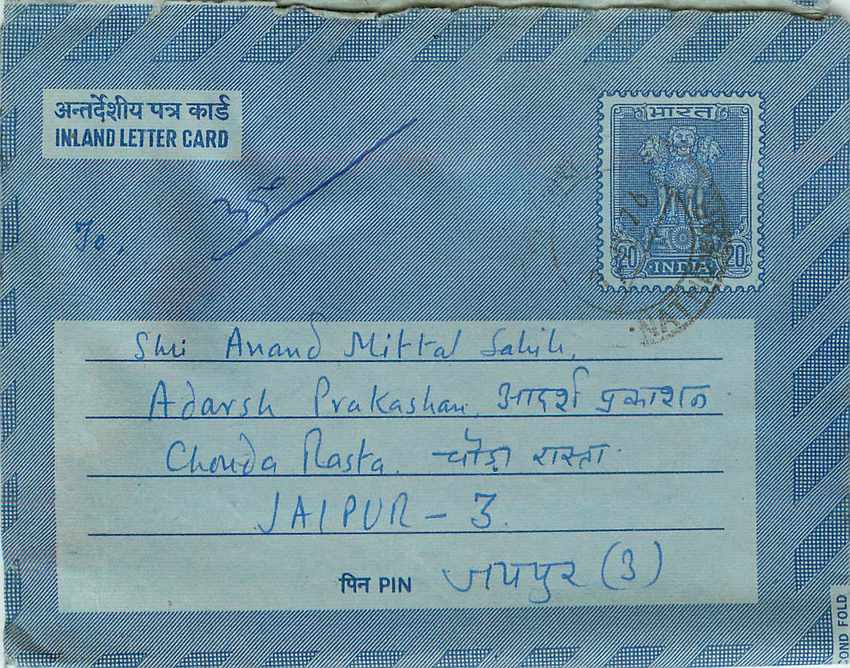 अन्तर्देशीय पत्र कार्ड
INLAND LETTER CARD
भारत
20 20
INDIA
76
To,
Shri Anand Mittal Sahib,
Adarsh Prakashan, आदर्श प्रकाशन
Chouda Rasta. चौड़ा रास्ता
JAIPUR - 3.
पिन PIN जयपुर (3)
OND FOLD